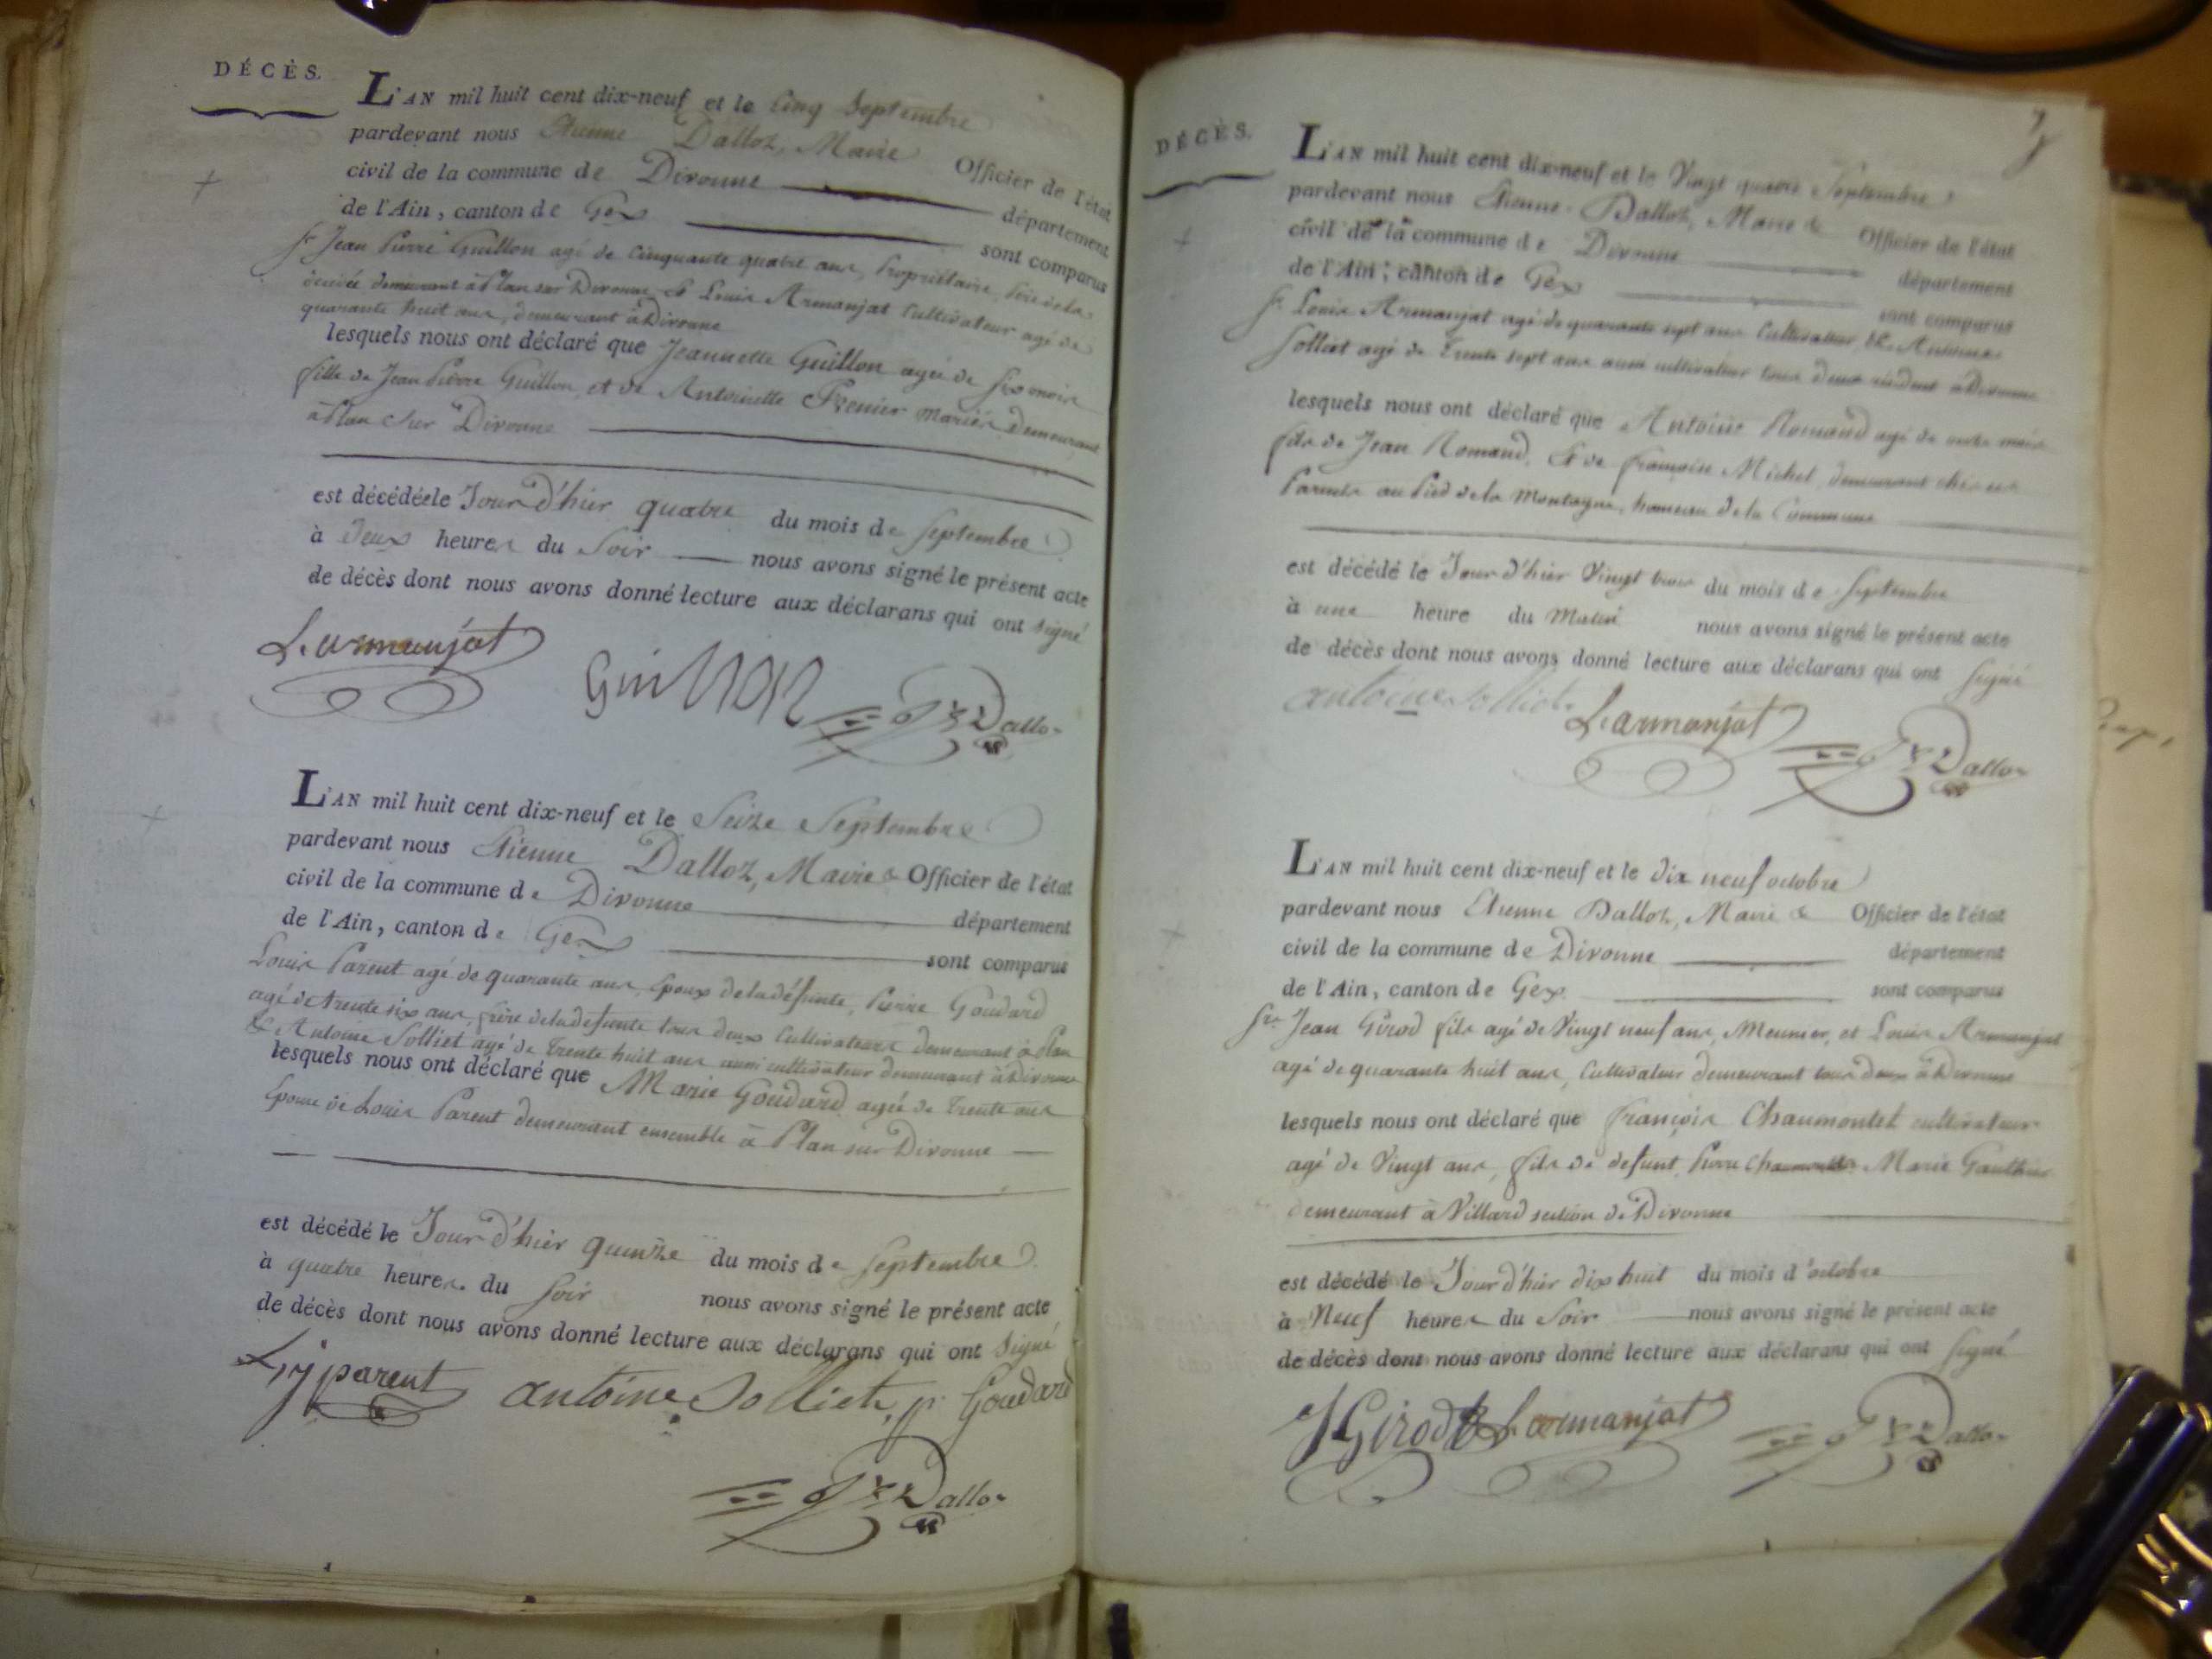 DÉCÈS.
L'AN mil huit cent dix-neuf et le cinq Septembre
pardevant nous Etienne Dalloz, Maire Officier de l'état
civil de la commune de Divonne département
de l'Ain, canton de Gex sont comparus
Sr Jean Pierre Guillon agé de Cinquante quatre ans, Propriétaire, Père de la
décédée demeurant à Plan sur Divonne, et Louis Armanjat Cultivateur agé de
quarante huit ans, demeurant à Divonne
lesquels nous ont déclaré que Jeannette Guillon agée de six mois
fille de Jean Pierre Guillon, et de Antoinette Prenier mariés demeurant
à Plan sur Divonne
est décédée le Jour d'hier quatre du mois de Septembre
à deux heures du Soir nous avons signé le présent acte
de décès dont nous avons donné lecture aux déclarans qui ont signé
L. armanjat
Guillon
Dalloz
L'AN mil huit cent dix-neuf et le Seize Septembre
pardevant nous Etienne Dalloz, Maire & Officier de l'état
civil de la commune de Divonne département
de l'Ain, canton de Gex sont comparus
Louis Parent agé de quarante ans, Epoux de la défunte, Pierre Goudard
agé de trente six ans, frère de la defunte tous deux Cultivateurs demeurant à Plan
& Antoine Solliet agé de Trente huit ans aussi cultivateur demeurant à Divonne
lesquels nous ont déclaré que Marie Goudard agée de Trente ans
Epouse de Louis Parent demeurant ensemble à Plan sur Divonne
est décédé le Jour d'hier quinze du mois de Septembre
à quatre heures du Soir nous avons signé le présent acte
de décès dont nous avons donné lecture aux déclarans qui ont Signé
parent antoine Solliet p Goudard
Dalloz
7
DÉCÈS.
L'AN mil huit cent dix-neuf et le Vingt quatre Septembre
pardevant nous Etienne Dalloz, Maire & Officier de l'état
civil de la commune de Divonne département
de l'Ain, canton de Gex sont comparus
Sr Louis Armanjat agé de quarante sept ans Cultivateur, & Antoine
Solliet agé de Trente sept ans aussi cultivateur tous deux résidant à Divonne
lesquels nous ont déclaré que Antoine Romand agé de onze mois
fils de Jean Romand, et de françoise Michel demeurant chez ses
Parents au Pied de la Montagne, hameau de la Commune
est décédé le Jour d'hier Vingt trois du mois de Septembre
à une heure du Matin nous avons signé le présent acte
de décès dont nous avons donné lecture aux déclarans qui ont Signé
antoine Solliet
L. armanjat
Dalloz
L'AN mil huit cent dix-neuf et le dix neuf octobre
pardevant nous Etienne Dalloz, Maire & Officier de l'état
civil de la commune de Divonne département
de l'Ain, canton de Gex sont comparus
Srs Jean Girod fils agé de Vingt neuf ans, Meunier, et Louis Armanjat
agé de quarante huit ans, Cultivateur demeurant tous deux à Divonne
lesquels nous ont déclaré que françois Chaumontet cultivateur
agé de Vingt ans, fils de defunt Pierre Marie Gauthier
demeurant à Villard section de Divonne
est décédé le Jour d'hier dix huit du mois d'octobre
à Neuf heures du Soir nous avons signé le présent acte
de décès dont nous avons donné lecture aux déclarans qui ont Signé
J Girod L. armanjat
Dalloz